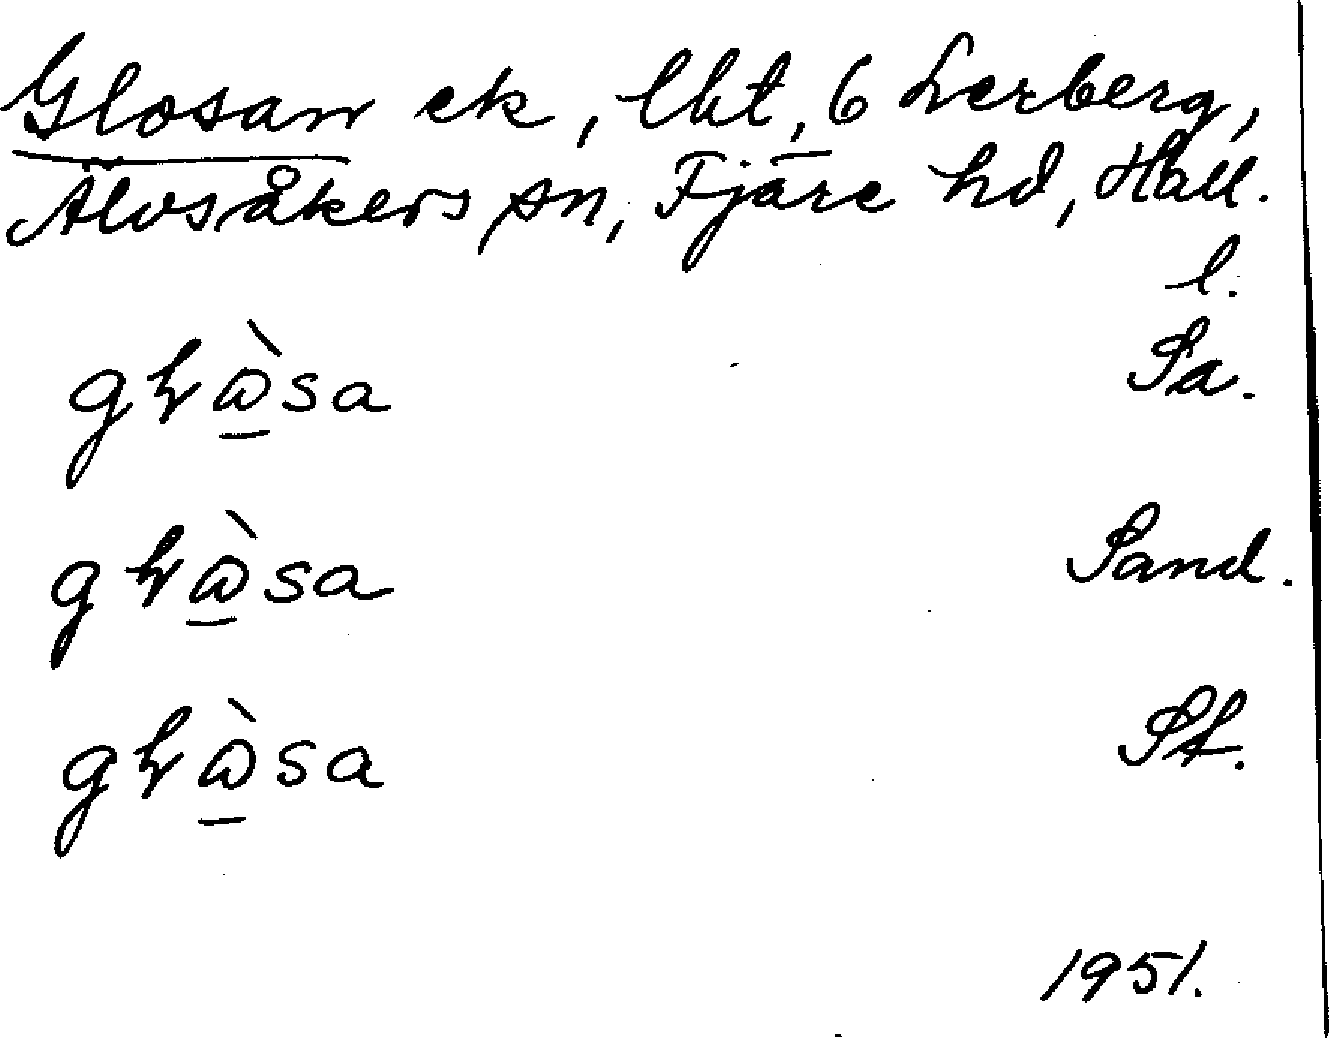 Glosan ek, lht, 6 Lerberg,
Älvsåkers sn, Fjäre hd, Hall.
l.
gɫɷ̀sa Sa.
gɫɷ̀sa Sand.
gɫɷ̀sa St.
1951.